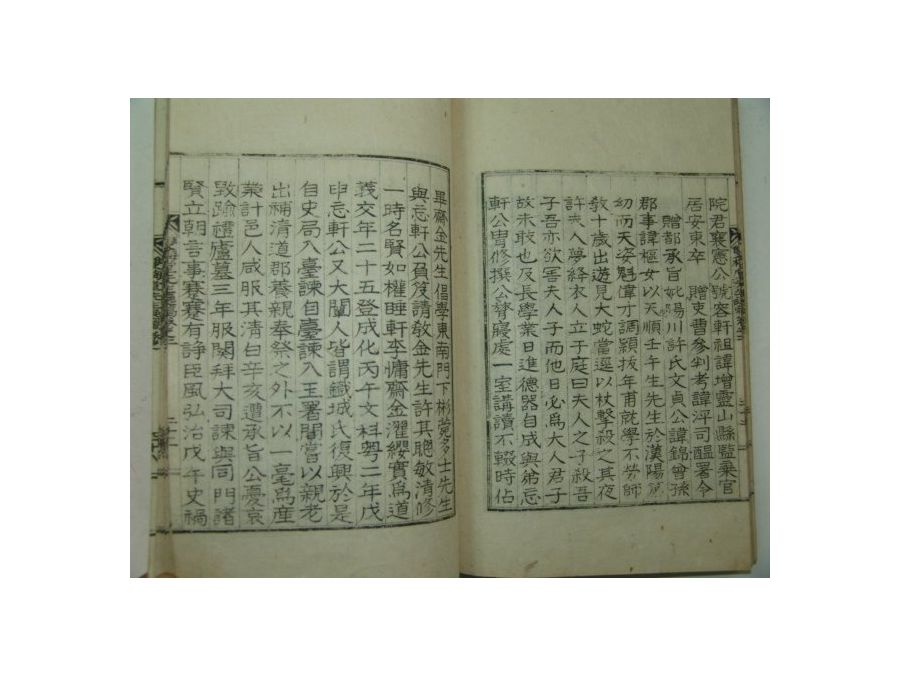 院君襄憲公號容軒祖諱增靈山縣監棄官
居安東卒　贈吏曹參判考諱泙司醞署令
贈都承旨妣陽川許氏文貞公諱錦曾孫
郡事諱樞女以天順壬午生先生於漢陽第
幼而天姿魁偉才調穎拔年甫就學不勞師
敎十歲出遊見大蛇當逕以杖擊殺之其夜
許夫人夢絳衣人立于庭曰夫人之子殺吾
子吾亦欲害夫人子而他日必爲大人君子
故未敢也及長學業日進德器自成與弟忘
軒公胄修撰公膂寢處一室講讀不輟時佔
畢齋金先生倡學東南門下彬蔚多士先生
與忘軒公負笈請敎金先生許其聰敏淸修
一時名賢如權睡軒李慵齋金濯纓實爲道
義交年二十五登成化丙午文科粤二年戊
申忘軒公又大闡人皆謂鐵城氏復興於是
自史局入臺諫自臺諫入玉署間嘗以親老
出補淸道郡養親奉祭之外不以一毫爲産
業計邑人咸服其淸白辛亥遭承旨公憂哀
毀踰禮廬墓三年服闋拜大司諫與同門諸
賢立朝言事謇謇有諍臣風弘治戊午史禍